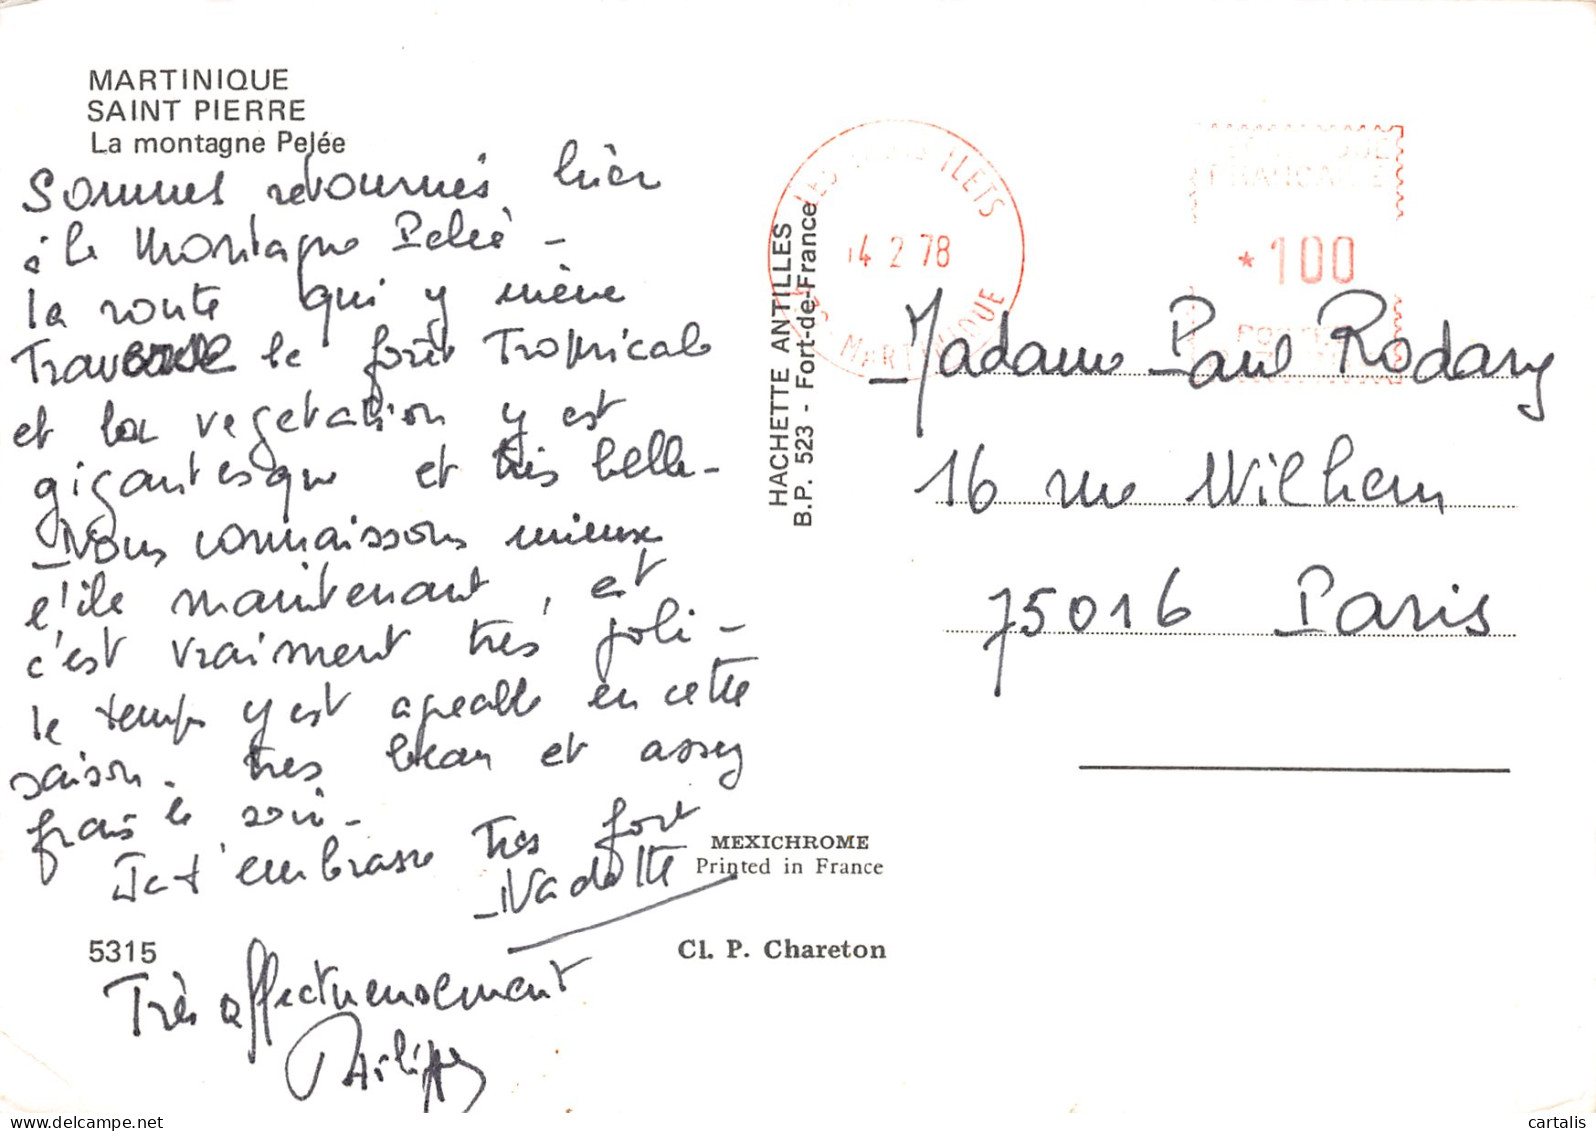 MARTINIQUE
SAINT PIERRE
La montagne Pelée
Sommes retournés hier
à la Montagne Pelée -
la route qui y mène
Traverse la forêt Tropicale
et la vegetation y est
gigantesque et très belle -
Nous connaissons mieux
l'ile maintenant, et
c'est vraiment très joli -
le temps y est agreable en cette
saison - très beau et assez
frais le soir -
Je t'embrasse très fort
Nadette
Très affectueusement
Philippe
5315
HACHETTE ANTILLES
B.P. 523 - Fort-de-France
MEXICHROME
Printed in France
Cl. P. Chareton
LES ILETS
14 2 78
MARTINIQUE
FRANCAISE
* 100
Madame Paul Rodary
16 rue Wilhem
75016 Paris
cartalis